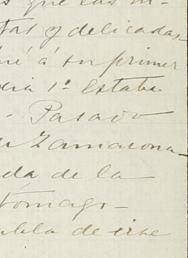 que las in-
tas y delicadas
á su primer
dia 1º Estaba
- Pasado
Zamacona
da de la
tómago -
abla de irse